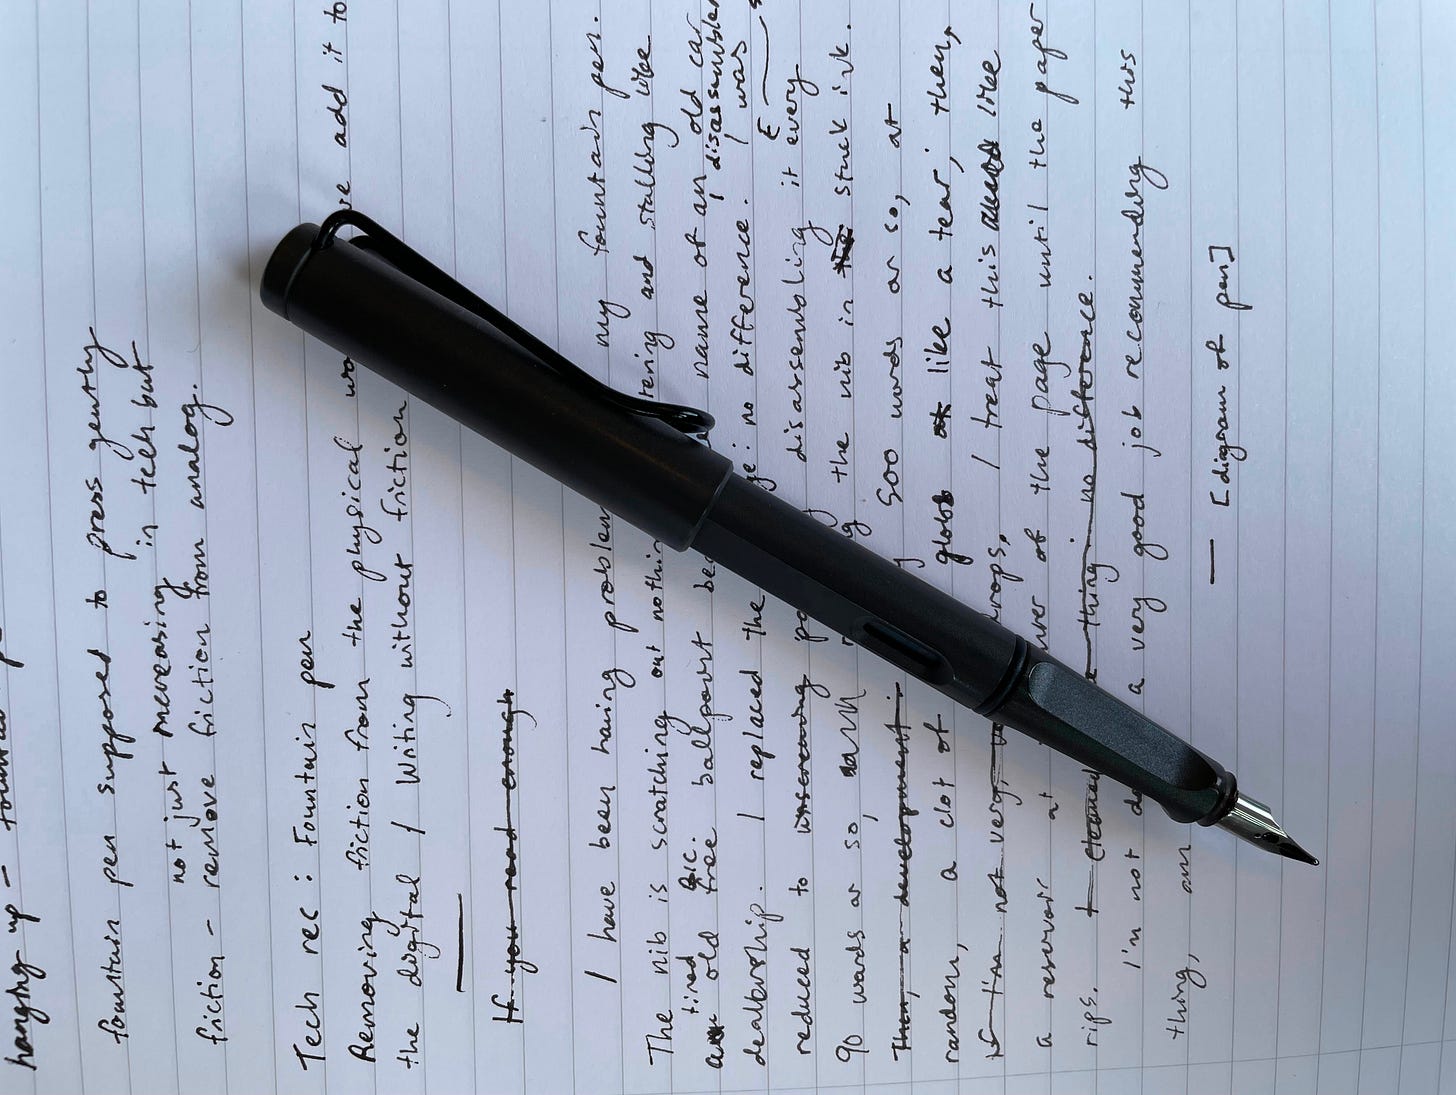 hanging up – fountain p
fountain pen supposed to press gently
not just increasing in tech but
friction – remove friction from analog.
Tech rec: Fountain pen
Removing friction from the physical wo ve add it to
the digital / Writing without friction
—
If you read enough
I have been having problem my fountain pen.
The nib is scratching out nothin tering and stalling like
tired Bic.
an old free ballpoint be name of an old car
dealership. I replaced the ge: no difference. I disassembled
I was
reduced to unscrewing po disassembling it every
90 words or so, the nib in the stuck ink.
Then, a development: 500 words or so, at
random, a clot of globs at like a tear; then,
if I'm not very, v drops, I treat this like
a reservoir at ver of the page until the paper
rips. I cleaned e thing: no difference.
I'm not d a very good job recommending this
thing, am
— [diagram of pen]